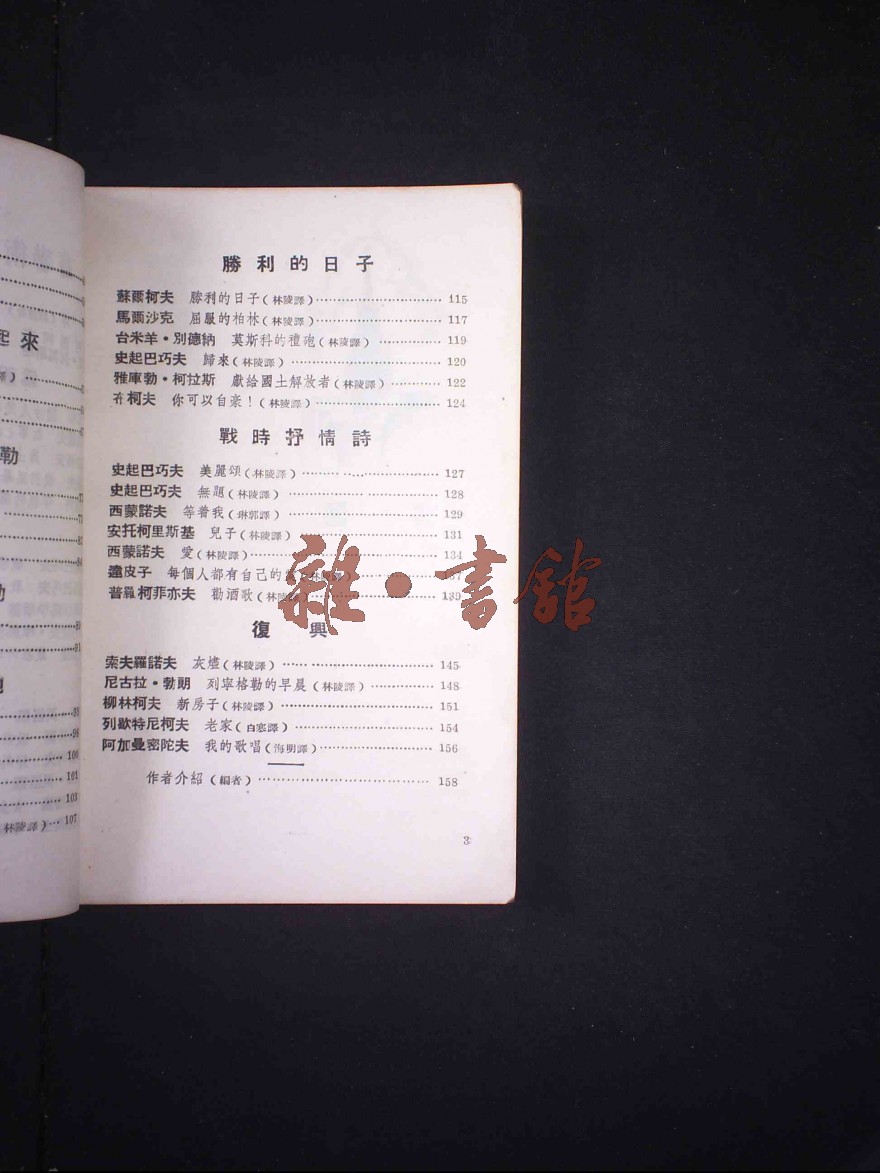 起來
譯）
勒
77
79
82
84
89
91
93
98
100
101
103
（林陵譯）… 107
勝利的日子
蘇爾柯夫 勝利的日子（林陵譯）…… 115
馬爾沙克 屈服的柏林（林陵譯）…… 117
台米羊·別德納 莫斯科的禮砲（林陵譯）…… 119
史起巴巧夫 歸來（林陵譯）…… 120
雅庫勃·柯拉斯 獻給國土解放者（林陵譯）…… 122
柯夫 你可以自豪！（林陵譯）…… 124
戰時抒情詩
史起巴巧夫 美麗頌（林陵譯）…… 127
史起巴巧夫 無題（林陵譯）…… 128
西蒙諾夫 等着我（琳郭譯）…… 129
安托柯里斯基 兒子（林陵譯）…… 131
西蒙諾夫 愛（林陵譯）…… 134
皮子 每個人都有自己的（林陵譯）…… 137
普羅柯菲亦夫 勸酒歌（林陵譯）…… 139
復興
索夫羅諾夫 灰燼（林陵譯）…… 145
尼古拉·勃朗 列寧格勒的早晨（林陵譯）…… 148
柳林柯夫 新房子（林陵譯）…… 151
列歇特尼柯夫 老家（白寒譯）…… 154
阿加曼密陀夫 我的歌唱（海明譯）…… 156
作者介紹（編者）…… 158
3
雜·書館